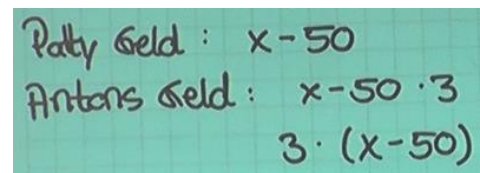 Patty Geld : x - 50
Antons Geld : x - 50 · 3
3 · (x - 50)